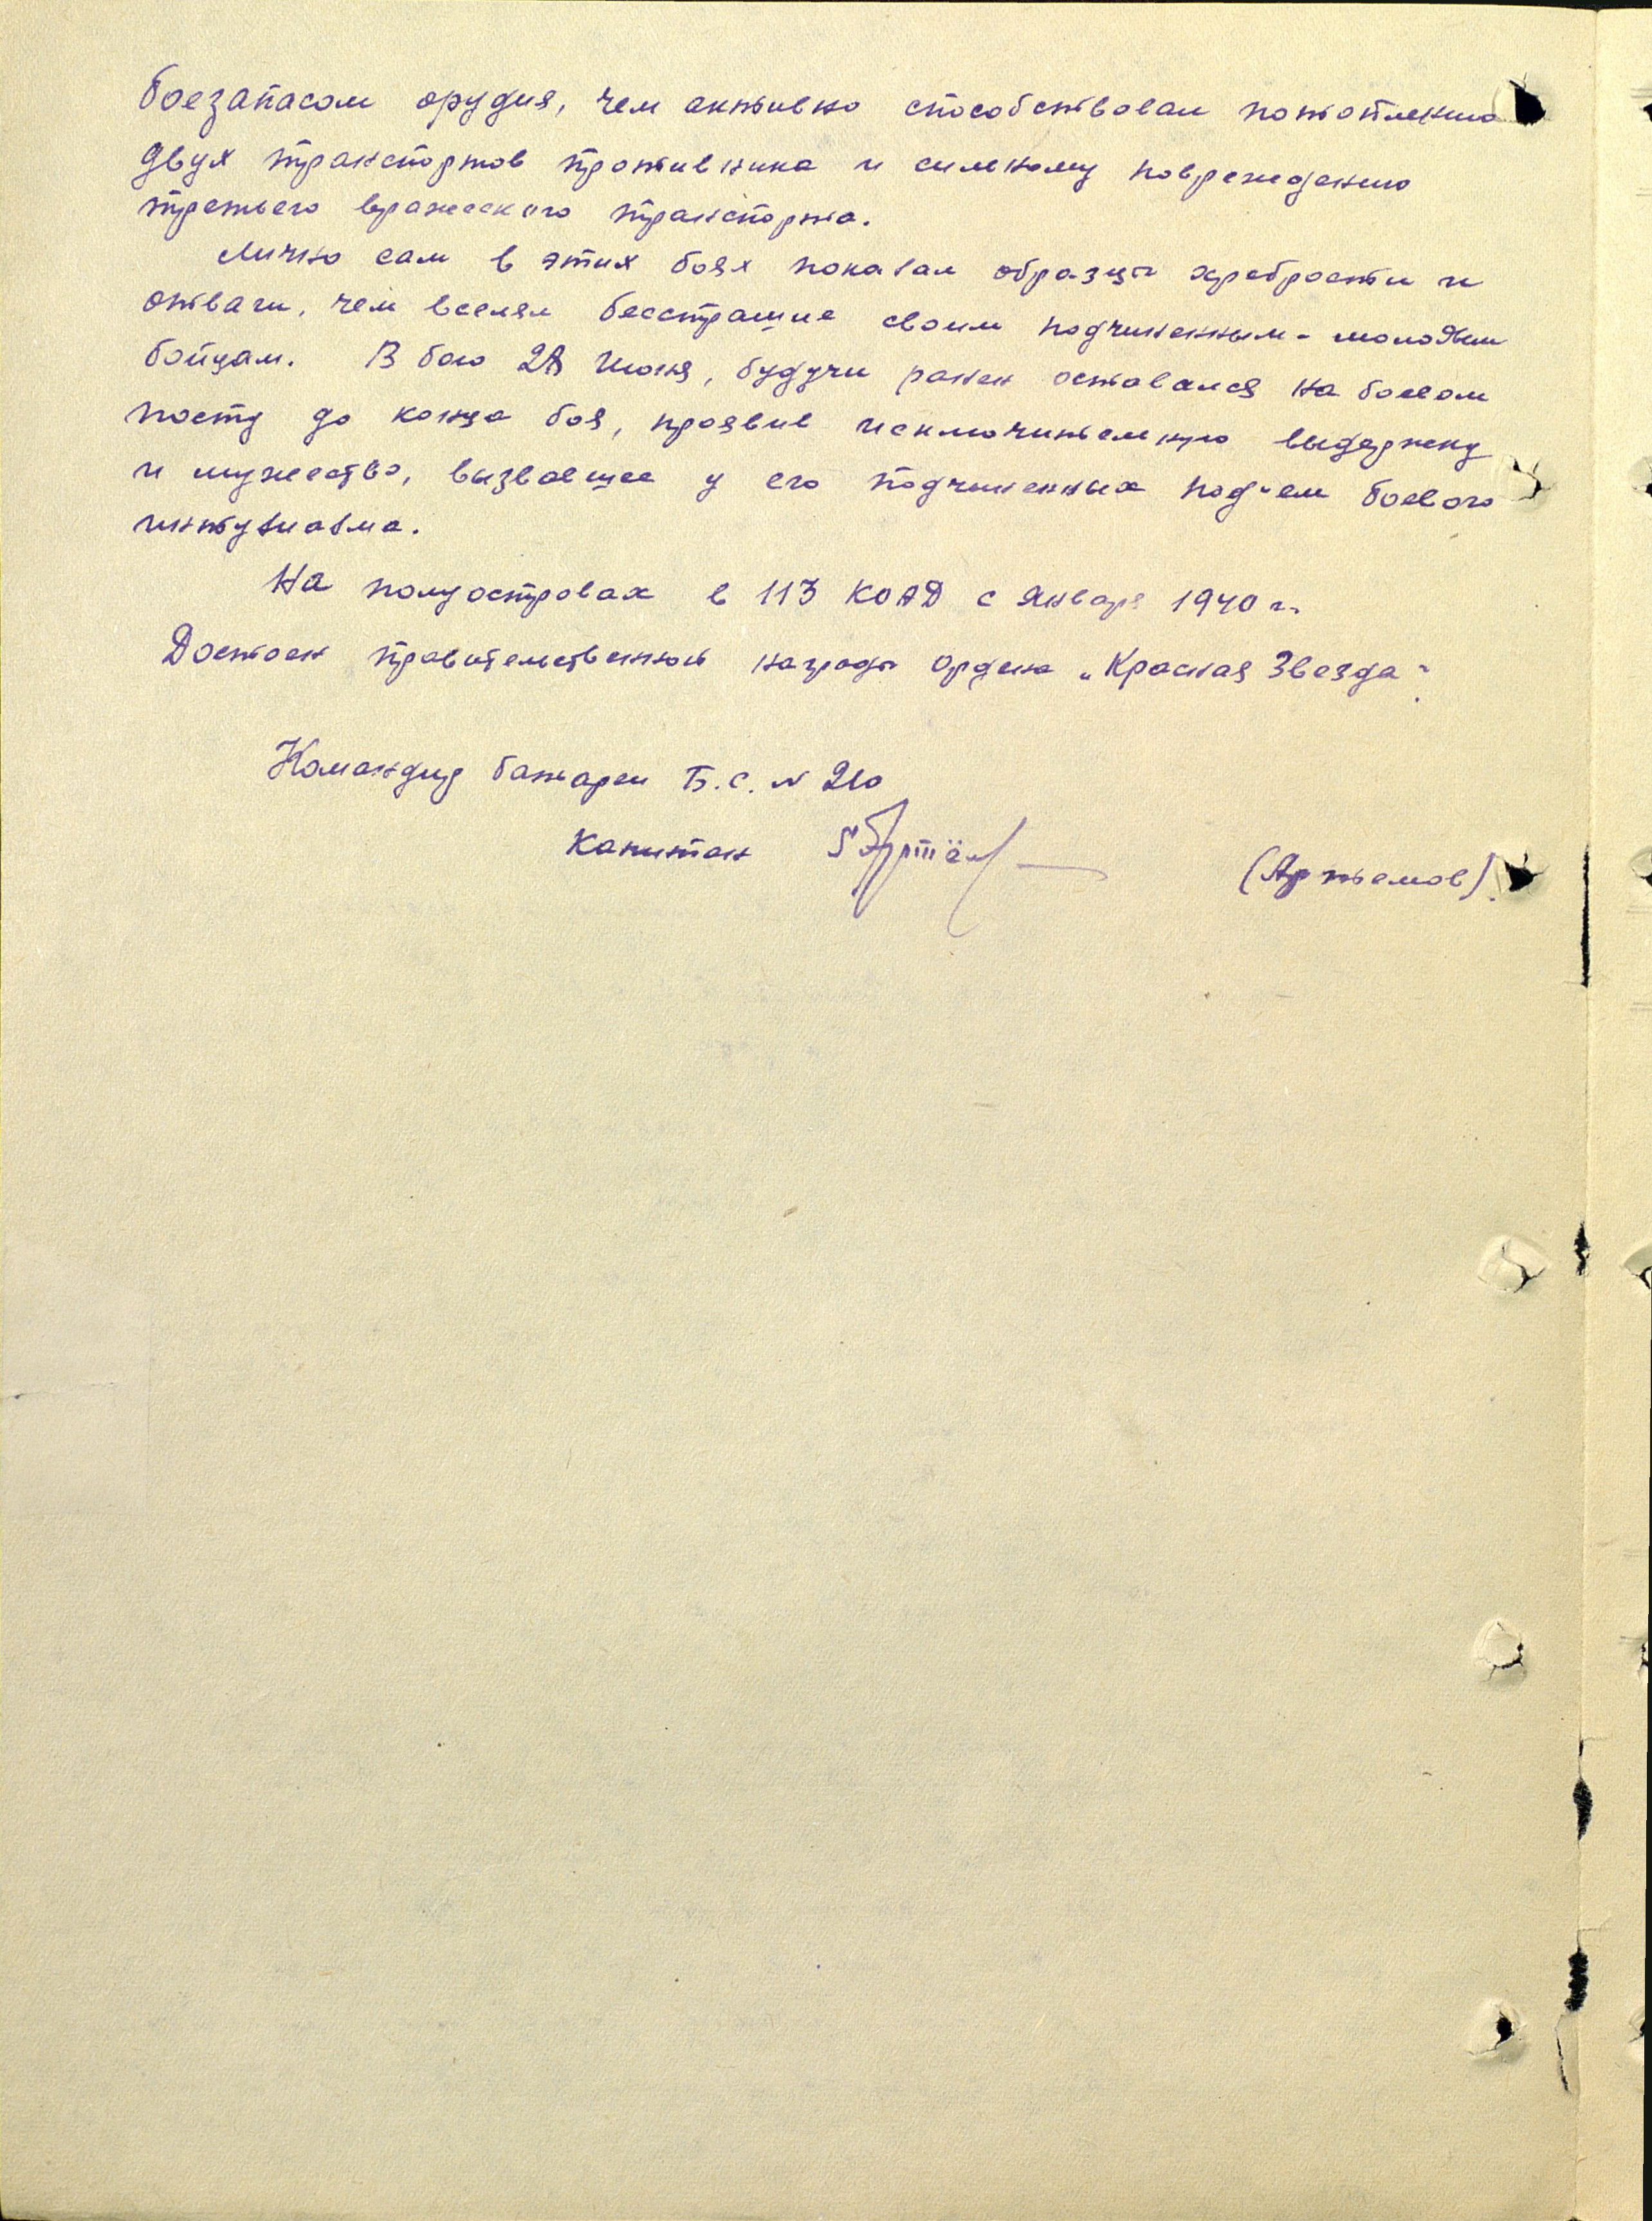 боезапасом орудия, чем активно способствовал потоплению
двух транспортов противника и сильному повреждению
третьего вражеского транспорта.
Лично сам в этих боях показал образцы храбрости и
отваги, чем вселял бесстрашие своим подчиненным - молодым
бойцам. В бою 28 июня, будучи ранен оставался на боевом
посту до конца боя, проявив исключительную выдержку
и мужество, вызвавшее у его подчиненных под'ем боевого
интузиазма.
На полуостровах в 113 КОАД с января 1940 г.
Достоен правительственной награды ордена „Красная Звезда"
Командир батареи Б.С. N 210
Капитан Артём
(Артьемов).